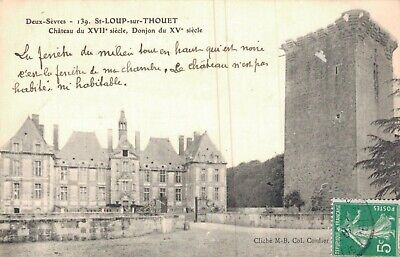 Deux-Sèvres - 139. St-LOUP-sur-THOUET
Château du XVIIe siècle, Donjon du XVe siècle
La fenêtre du milieu tout en haut qui est noire
c'est la fenêtre de ma chambre. Le château n'est pas
habité ni habitable.
Cliché M-B. Col. Cordier
POSTES
5c